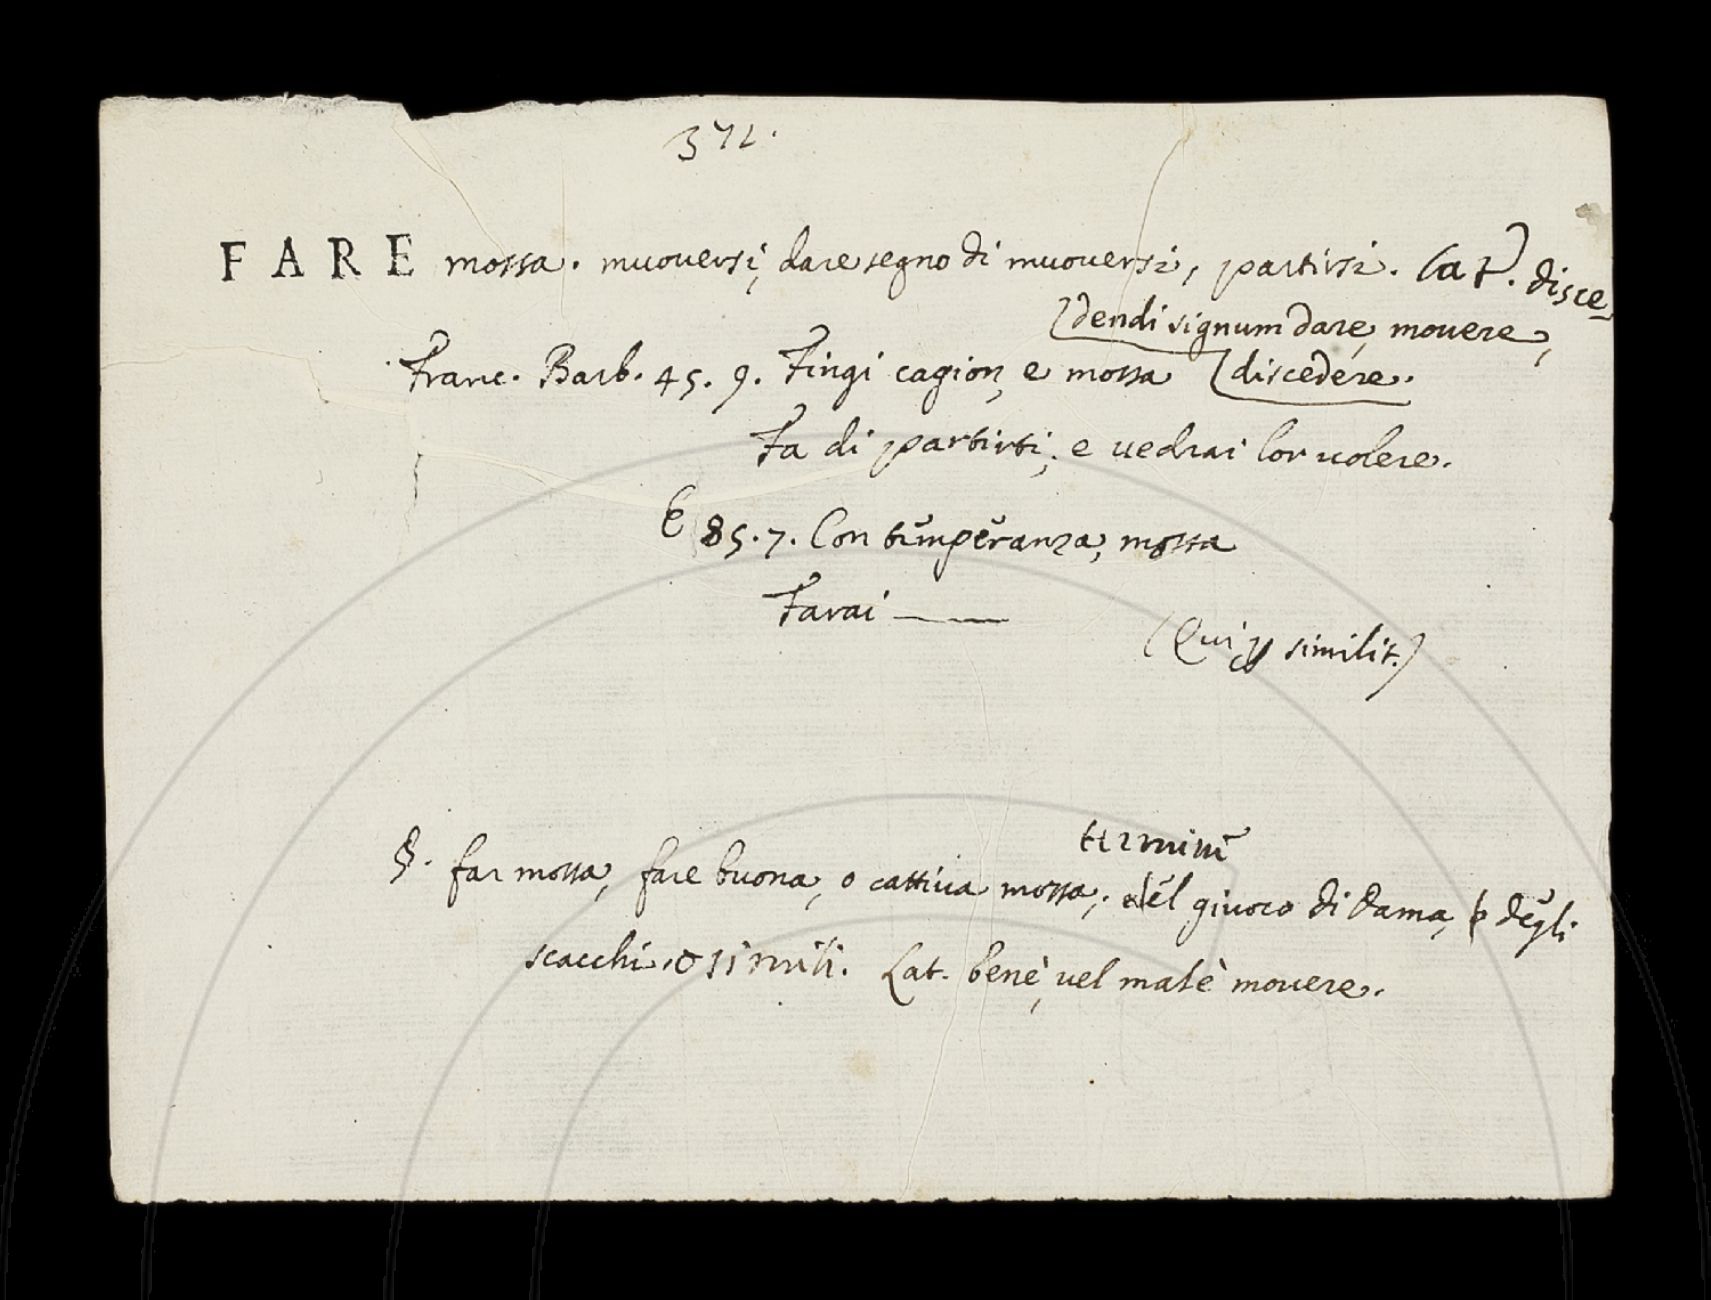 372.
FARE mossa. muouersi, dare segno di muouersi, partirsi. Lat. disce-
dendi signum dare, mouere,
discedere.
Franc. Barb. 45. 9. Fingi cagion, e mossa
Fa di partirti, e uedrai lor uolere.
E 85. 7. Con temperanza, mossa
Farai ——
(Qui p similit.)
termine
§. far mossa, fare buona, o cattiua mossa, del giuoco di dama, degli
scacchi, o simili. Lat. benè, vel malè mouere.